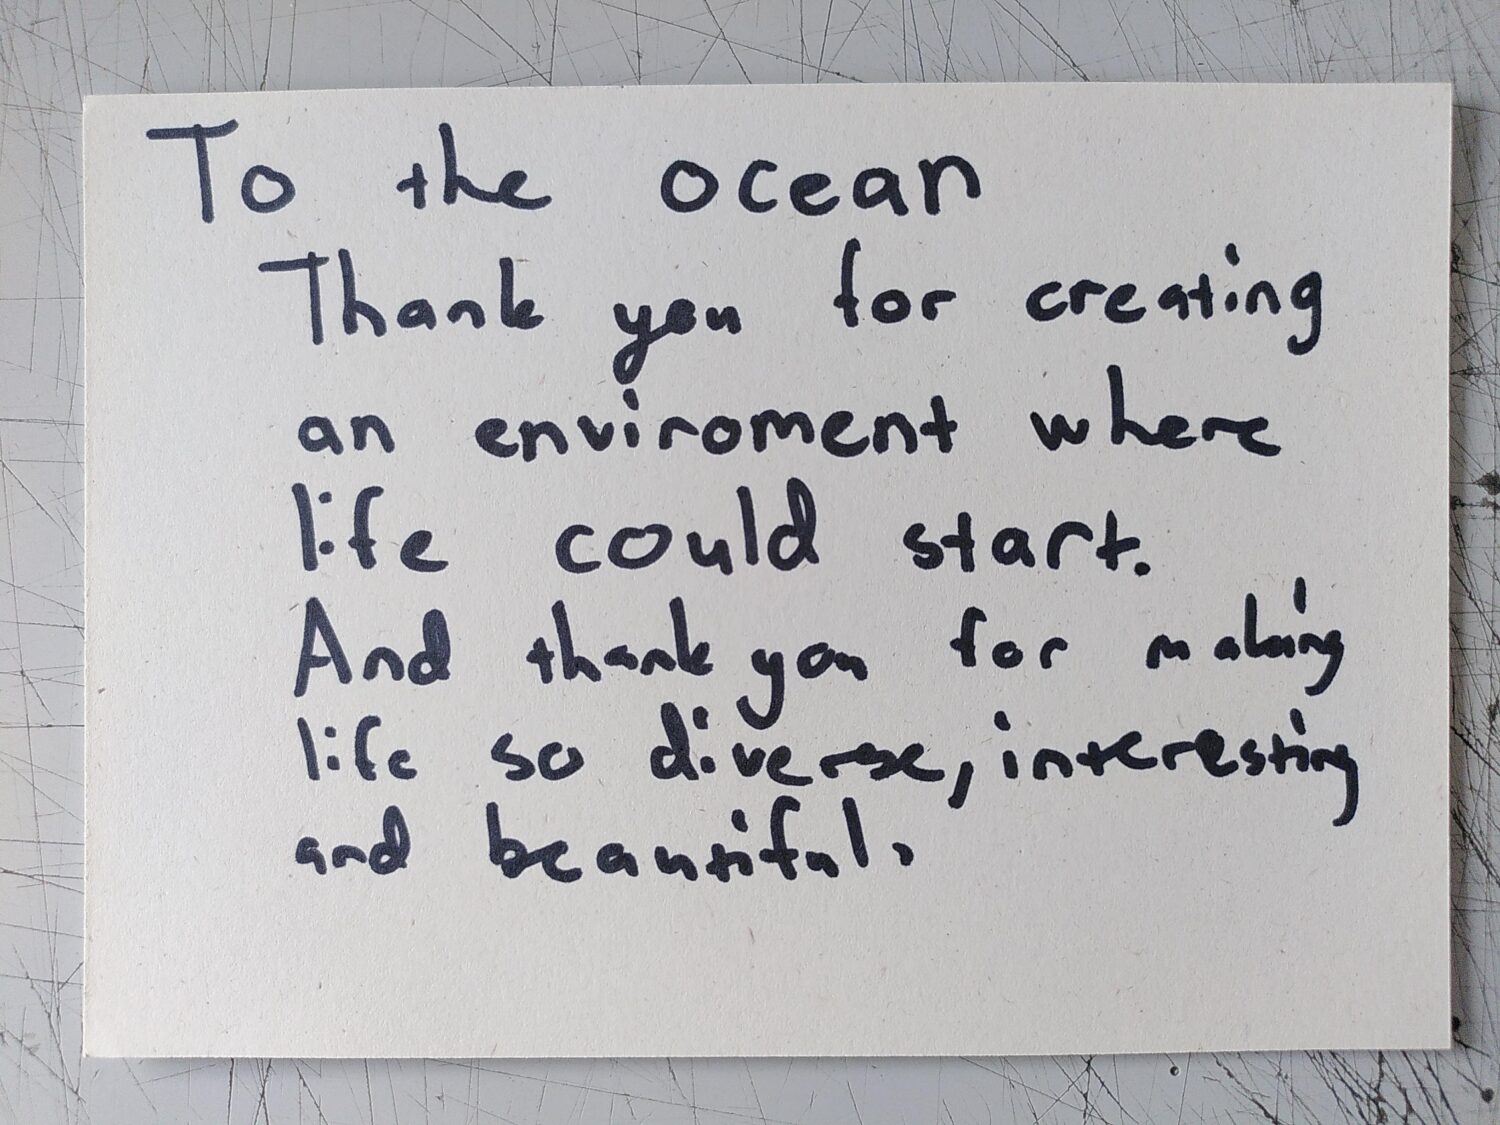 To the ocean
Thank you for creating
an enviroment where
life could start.
And thank you for making
life so diverse, interesting
and beautiful.